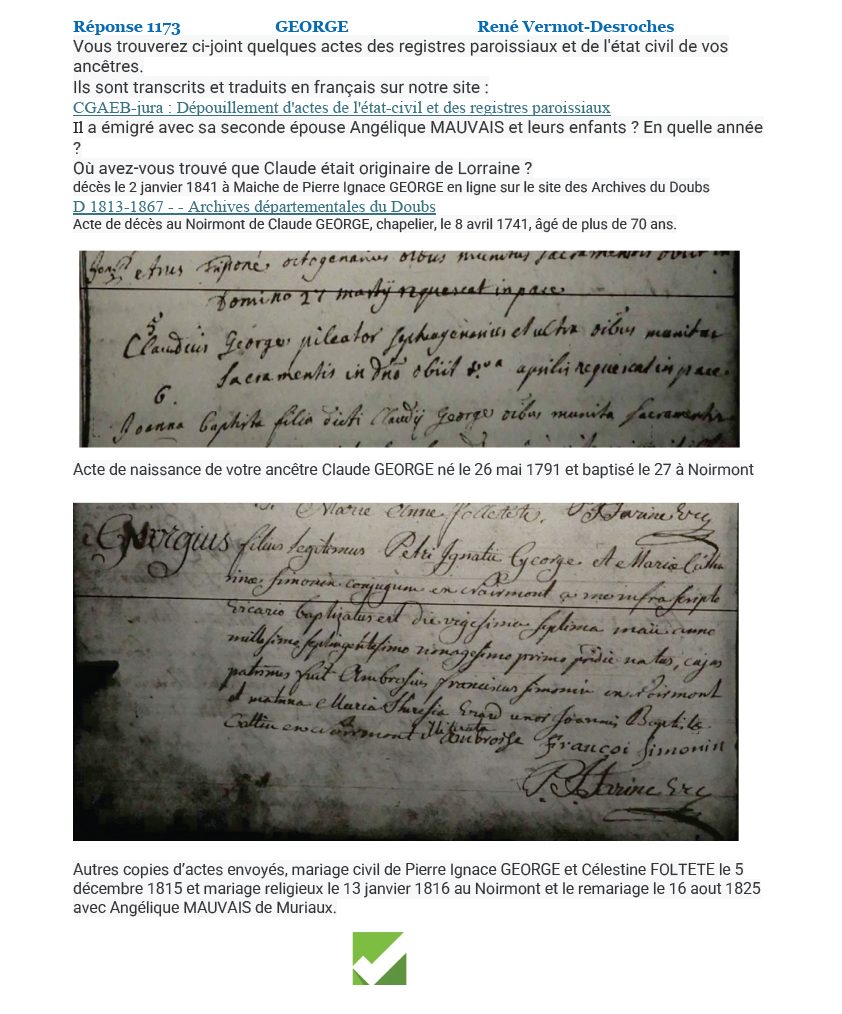 Réponse 1173 GEORGE René Vermot-Desroches
Vous trouverez ci-joint quelques actes des registres paroissiaux et de l'état civil de vos
ancêtres.
Ils sont transcrits et traduits en français sur notre site :
CGAEB-jura : Dépouillement d'actes de l'état-civil et des registres paroissiaux
Il a émigré avec sa seconde épouse Angélique MAUVAIS et leurs enfants ? En quelle année
?
Où avez-vous trouvé que Claude était originaire de Lorraine ?
décès le 2 janvier 1841 à Maiche de Pierre Ignace GEORGE en ligne sur le site des Archives du Doubs
D 1813-1867 - - Archives départementales du Doubs
Acte de décès au Noirmont de Claude GEORGE, chapelier, le 8 avril 1741, âgé de plus de 70 ans.
octogenarius oibus munitus sacramentis obiit in
Domino 27 martij requiescat in pace
5
Claudius George pileator septuagenarius et ultra oibus munitus
Sacramentis in dno obiit aprilis requiescat in pace
6.
Joanna baptista filia dicti Claudij George oibus munita sacramentis
Acte de naissance de votre ancêtre Claude GEORGE né le 26 mai 1791 et baptisé le 27 à Noirmont
Marie Anne Folletete.
Georgius filius legitimus Petri Ignatii George et Mariæ Catha
rinæ Simonin conjugum ex Noirmont a me infra scripto
Vicario baptizatus est die vigesima septima maii anno
millesimo septingentesimo nonagesimo primo pridie natus, cujus
patrinus fuit Ambrosius franciscus simonin ex Noirmont
et matrina Maria Theresia Erard uxor Joannis Baptistæ
ex Noirmont Ambroise François Simonin
Autres copies d’actes envoyés, mariage civil de Pierre Ignace GEORGE et Célestine FOLTETE le 5
décembre 1815 et mariage religieux le 13 janvier 1816 au Noirmont et le remariage le 16 aout 1825
avec Angélique MAUVAIS de Muriaux.